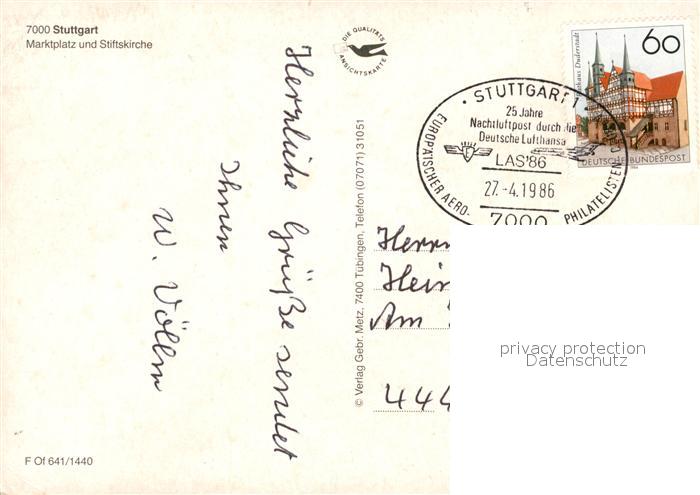 7000 Stuttgart
Marktplatz und Stiftskirche
DIE QUALITÄTS
ANSICHTSKARTE
Herzliche Grüße sendet
Ihnen
W. Völlm
F Of 641/1440
© Verlag Gebr. Metz, 7400 Tübingen, Telefon (07071) 31051
60
Rathaus Duderstadt
DEUTSCHE BUNDESPOST
STUTTGART 1
25 Jahre
Nachtluftpost durch die
Deutsche Lufthansa
LAS'86
27.-4.1986
7000
EUROPÄISCHER AERO-
PHILATELISTEN
Herrn
Hein
Am
444
privacy protection
Datenschutz